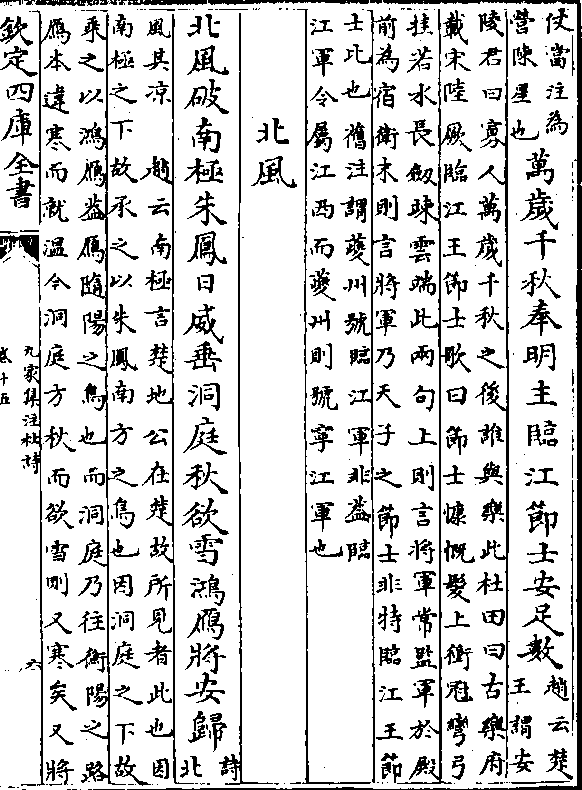 使當注為
營陳星也
萬歲千秋奉明主臨江節士安足數
趙云楚
王謂安
陵君曰寡人萬歲千秋之後誰與樂此杜田曰古樂府
載宋陸厥臨江王節士歌曰節士慷慨髮上衝冠彎弓
挂若水長劔竦雲端此兩句上則言將軍常監軍於殿
前為宿衛末則言將軍乃天子之節士非特臨江王節
士比也舊注謂夔州號臨江軍非葢臨
江軍今屬江西而夔州則號寧江軍也
北風
北風破南極朱鳳日威垂洞庭秋欲雪鴻鴈將安歸
詩
北
風其凉 趙云南極言楚地公在楚故所見者此也因
南極之下故承之以朱鳳南方之鳥也因洞庭之下故
乘之以鴻鴈葢鴈隨陽之鳥也而洞庭乃往衡陽之路
鴈本違寒而就溫今洞庭方秋而欲雪則又寒矣又將
欽定四庫全書
九家集注杜詩
卷十五
六